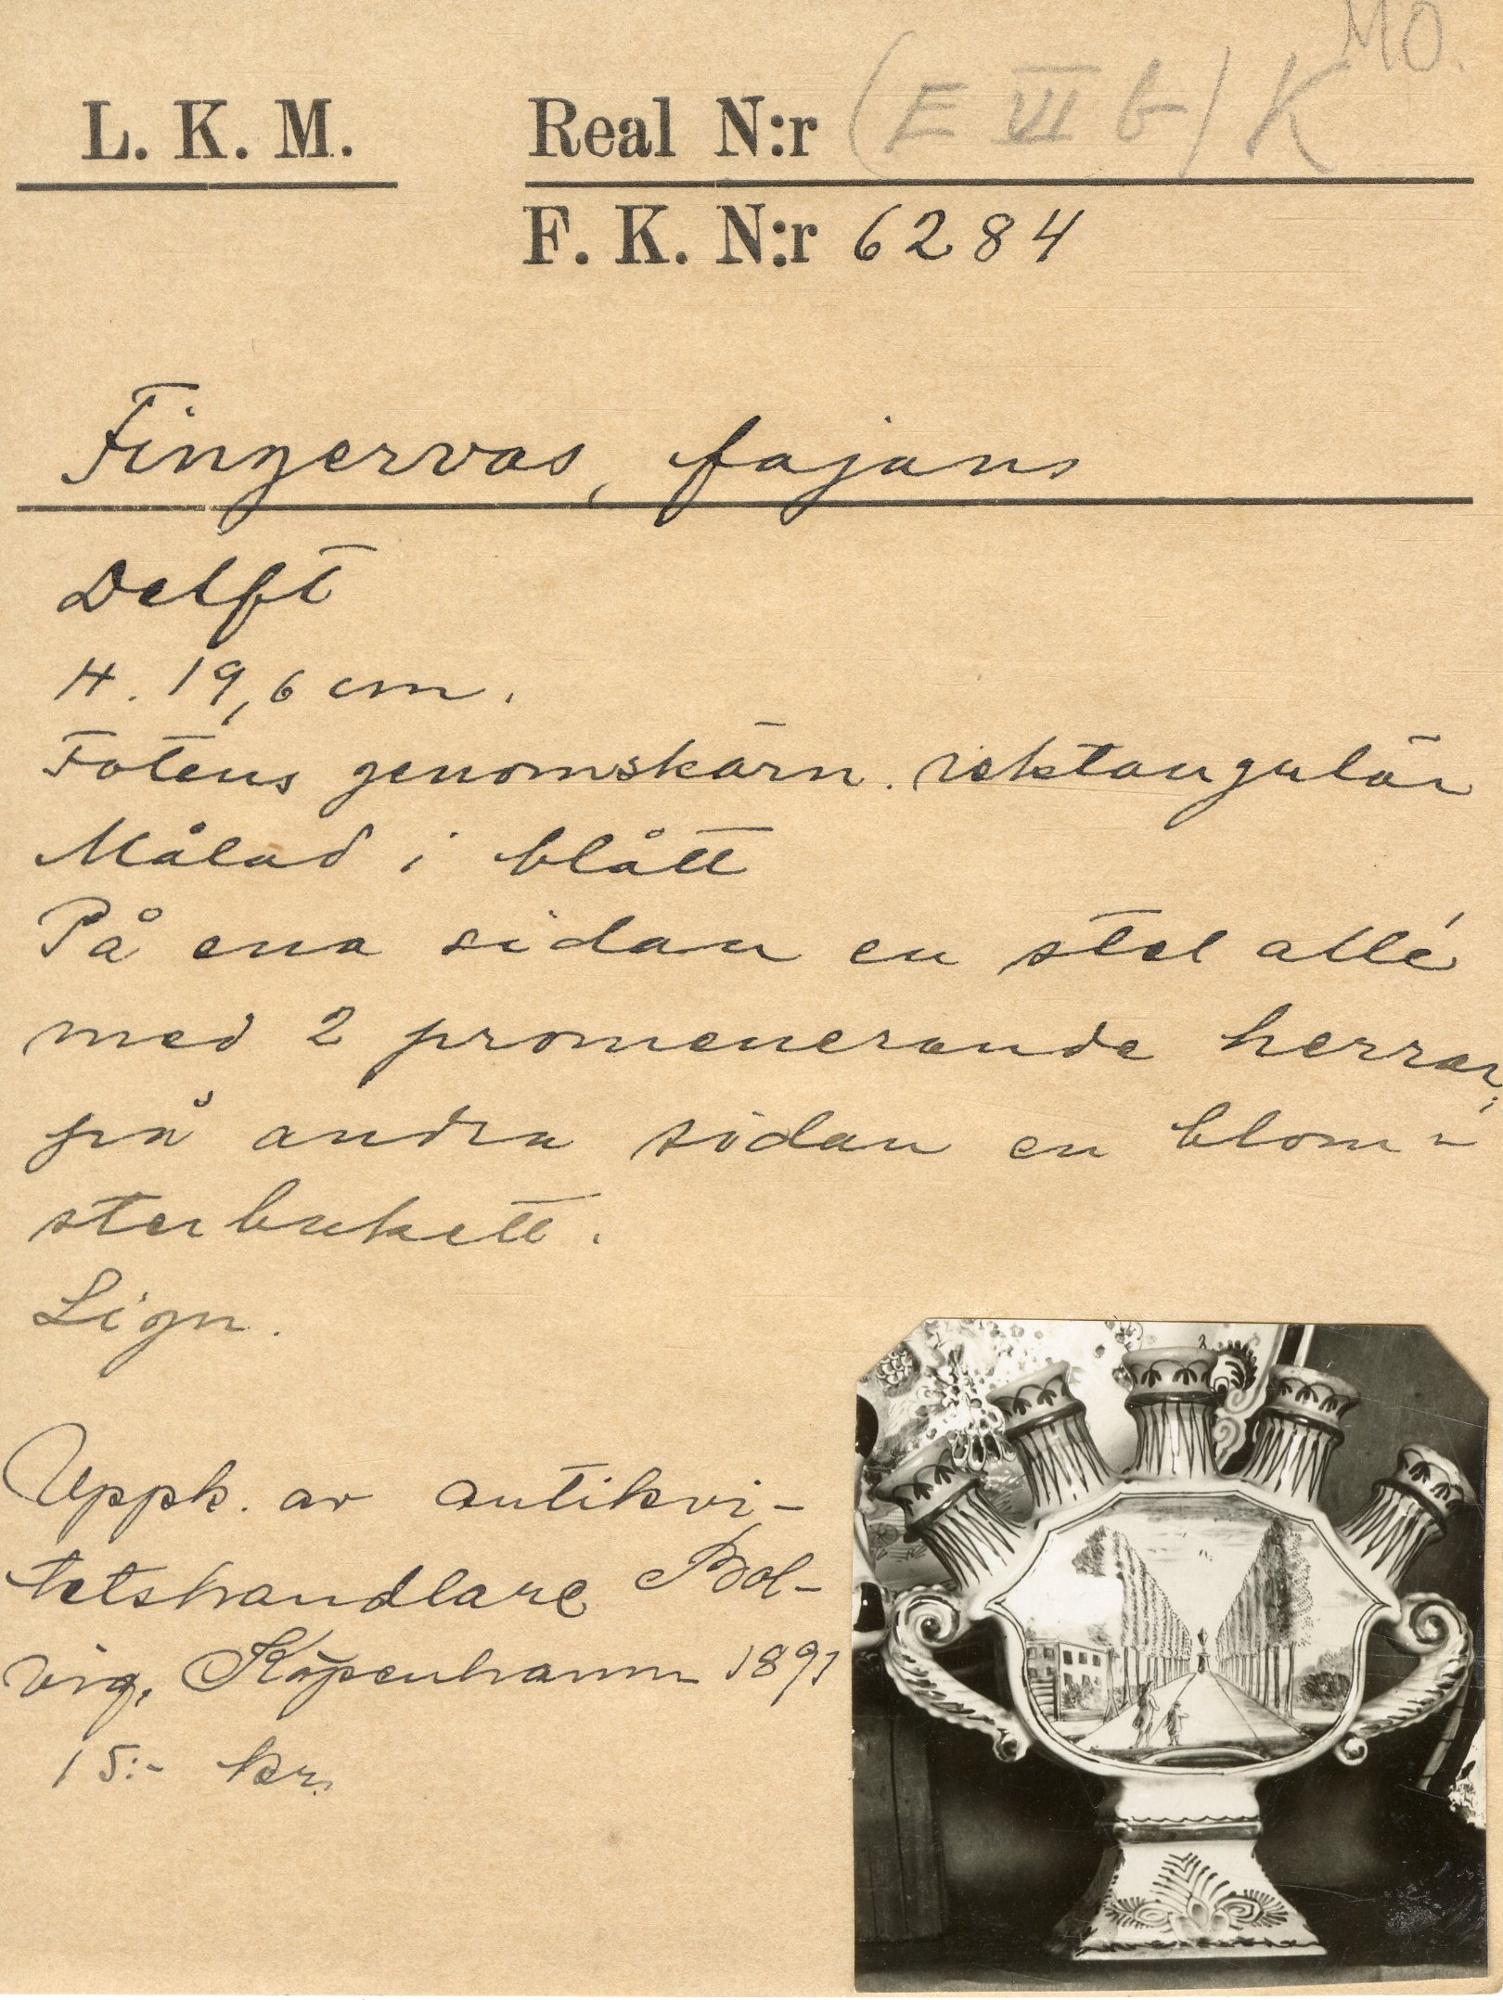 MO.
L. K. M. Real N:r (E VI b) K
F. K. N:r 6284
Fingervas, fajans
Delft
H. 19,6 cm.
Fotens genomskärn. rektangulär
Målad i blått
På ena sidan en stel allé
med 2 promenerande herrar;
på andra sidan en blom-
sterbukett.
Sign.
Uppk. av antikvi-
tetshandlare Bol-
vig, Köpenhamn 1891
15:- kr.